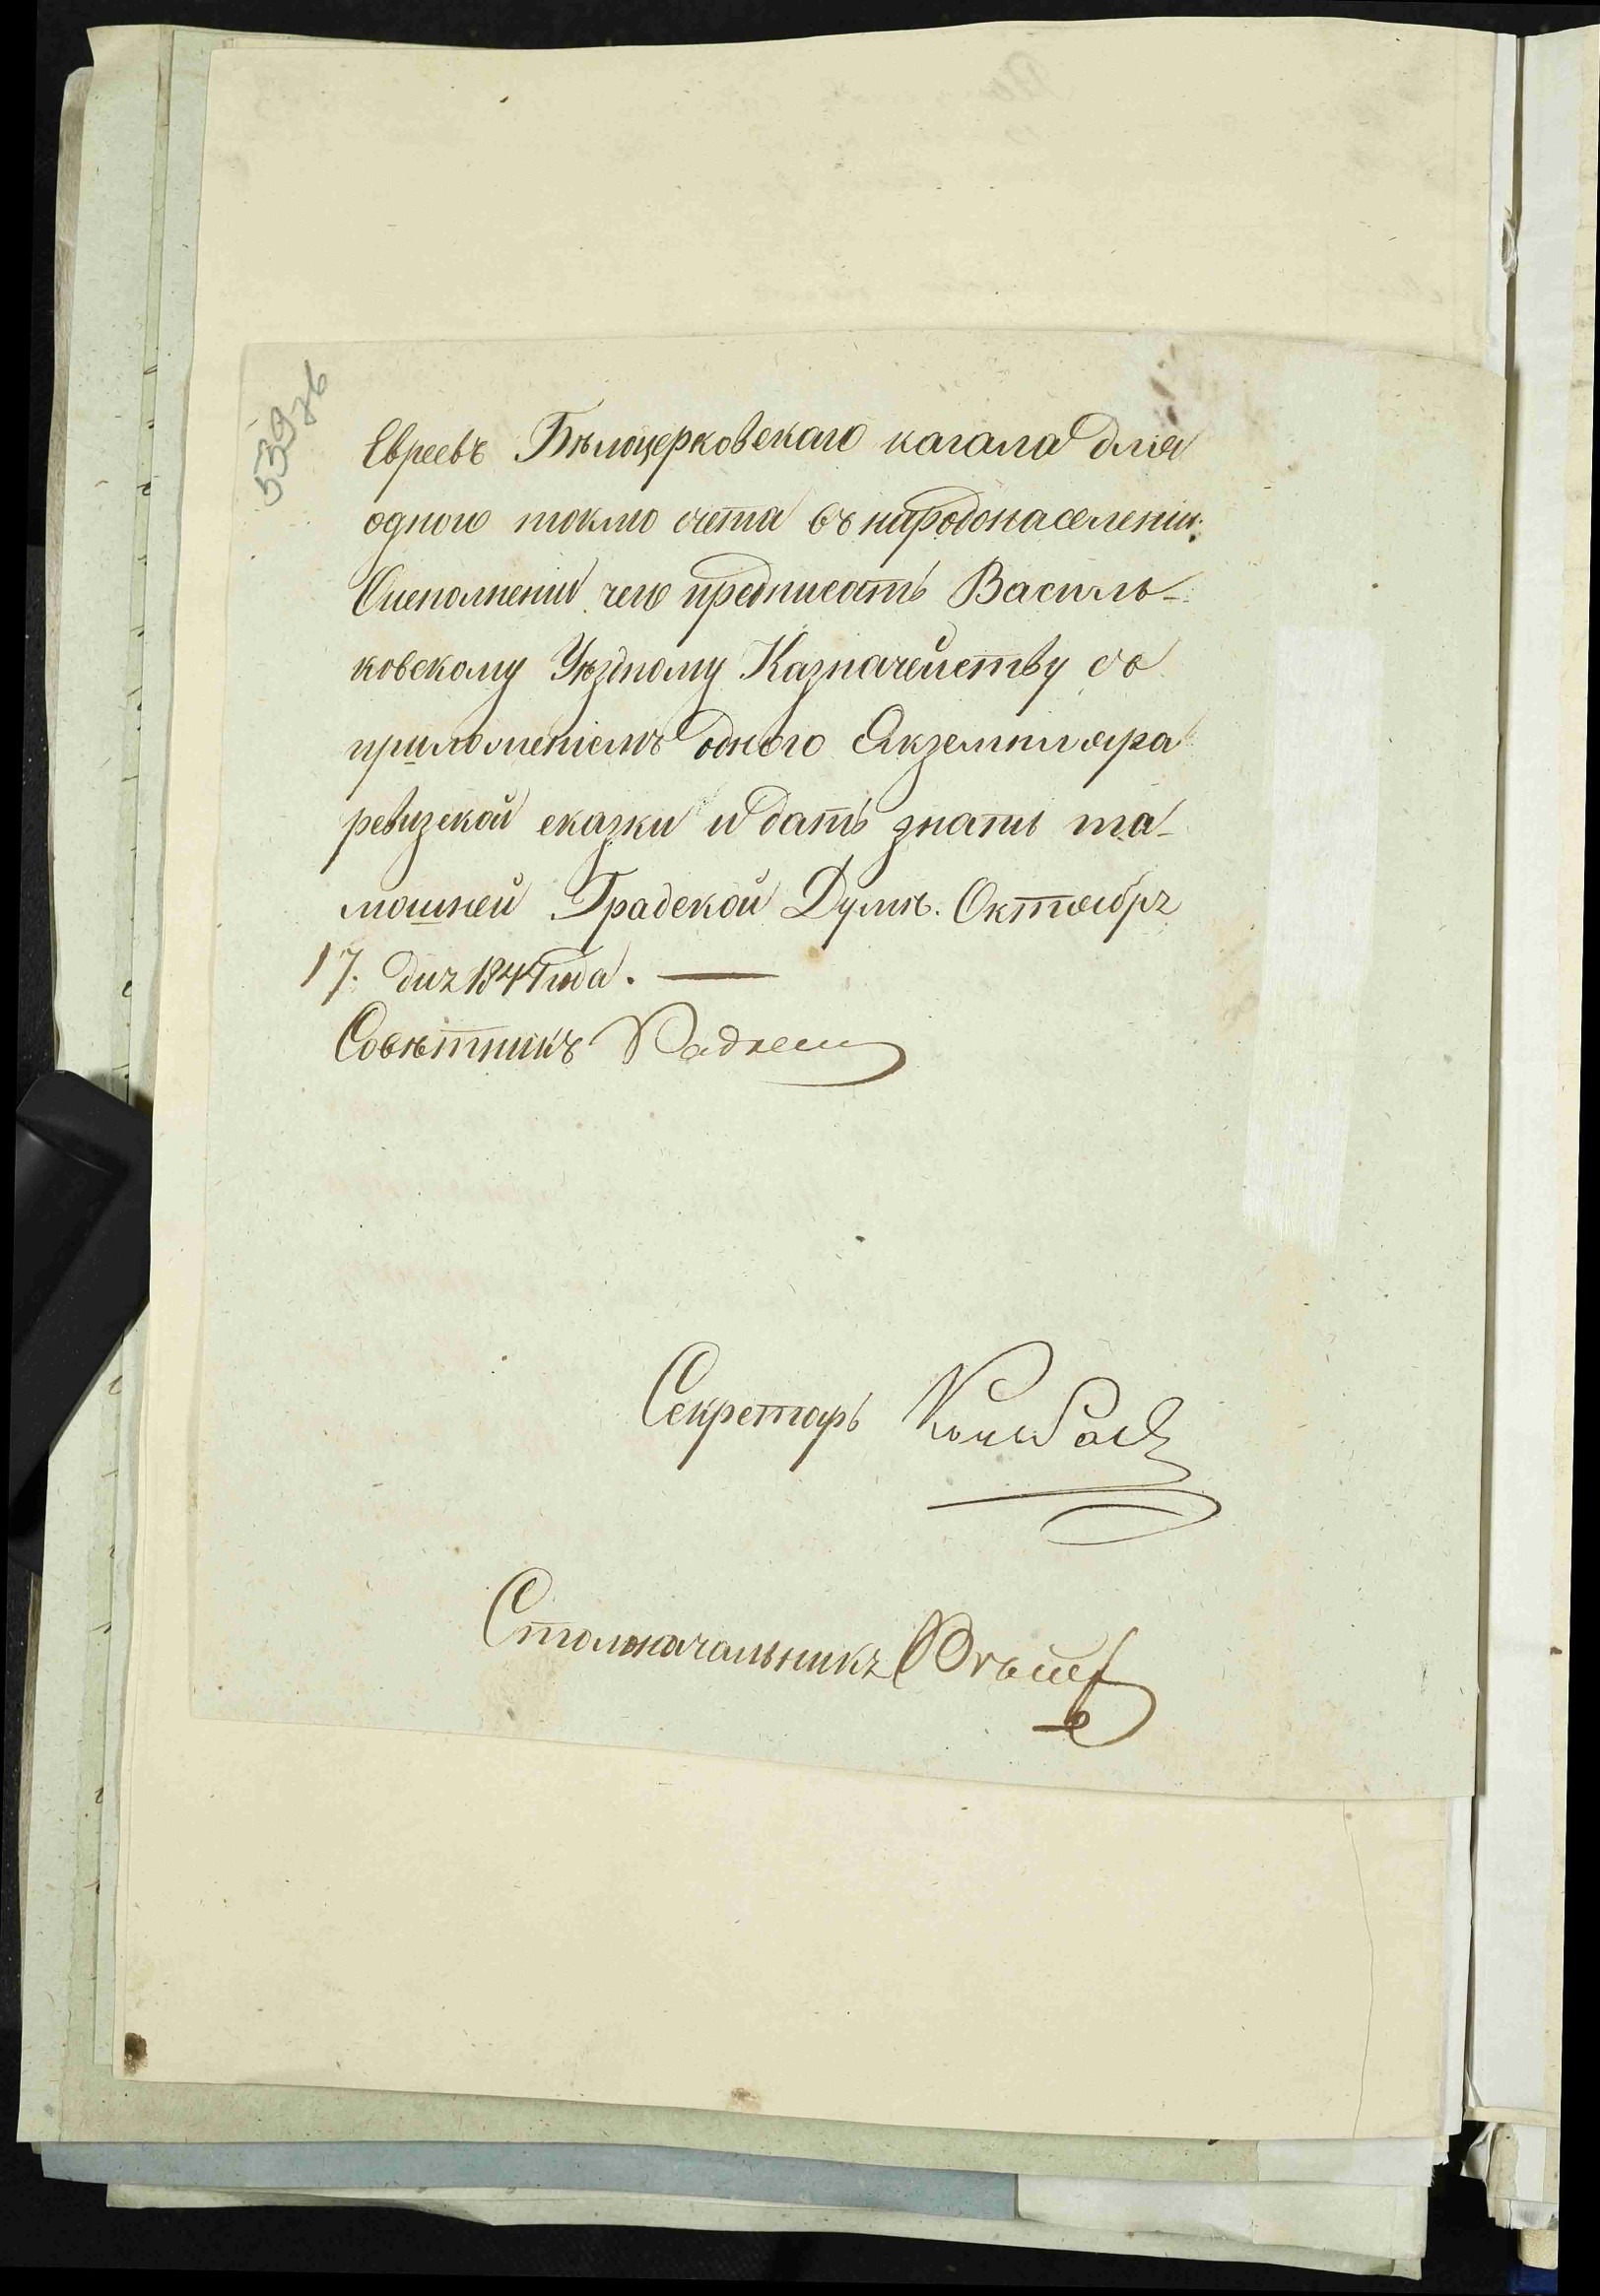 539зв
Евреевъ Бѣлоцерковскаго кагала для
одного токмо счета въ народонаселеніи.
О исполненіи чего предписать Василь-
ковскому Уѣздному Казначейству съ
приложеніемъ одного Экземпляра
ревизской сказки и дать знать та-
мошней Градской Думѣ. Октября
17. дня 1844 года. —
Совѣтникъ
Секретарь
Столоначальникъ